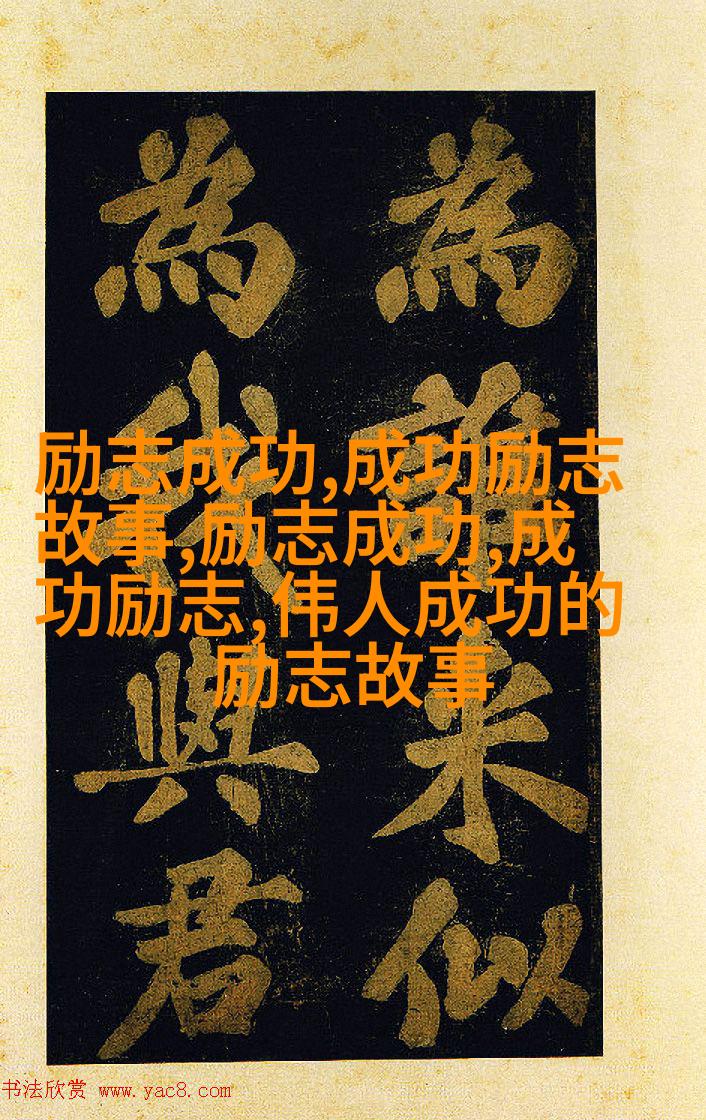 為誰来似
為我與君
励志成功,成功励志
故事,励志成功,成
功励志,伟人成功的
励志故事
书法欣赏 www.yac8.com